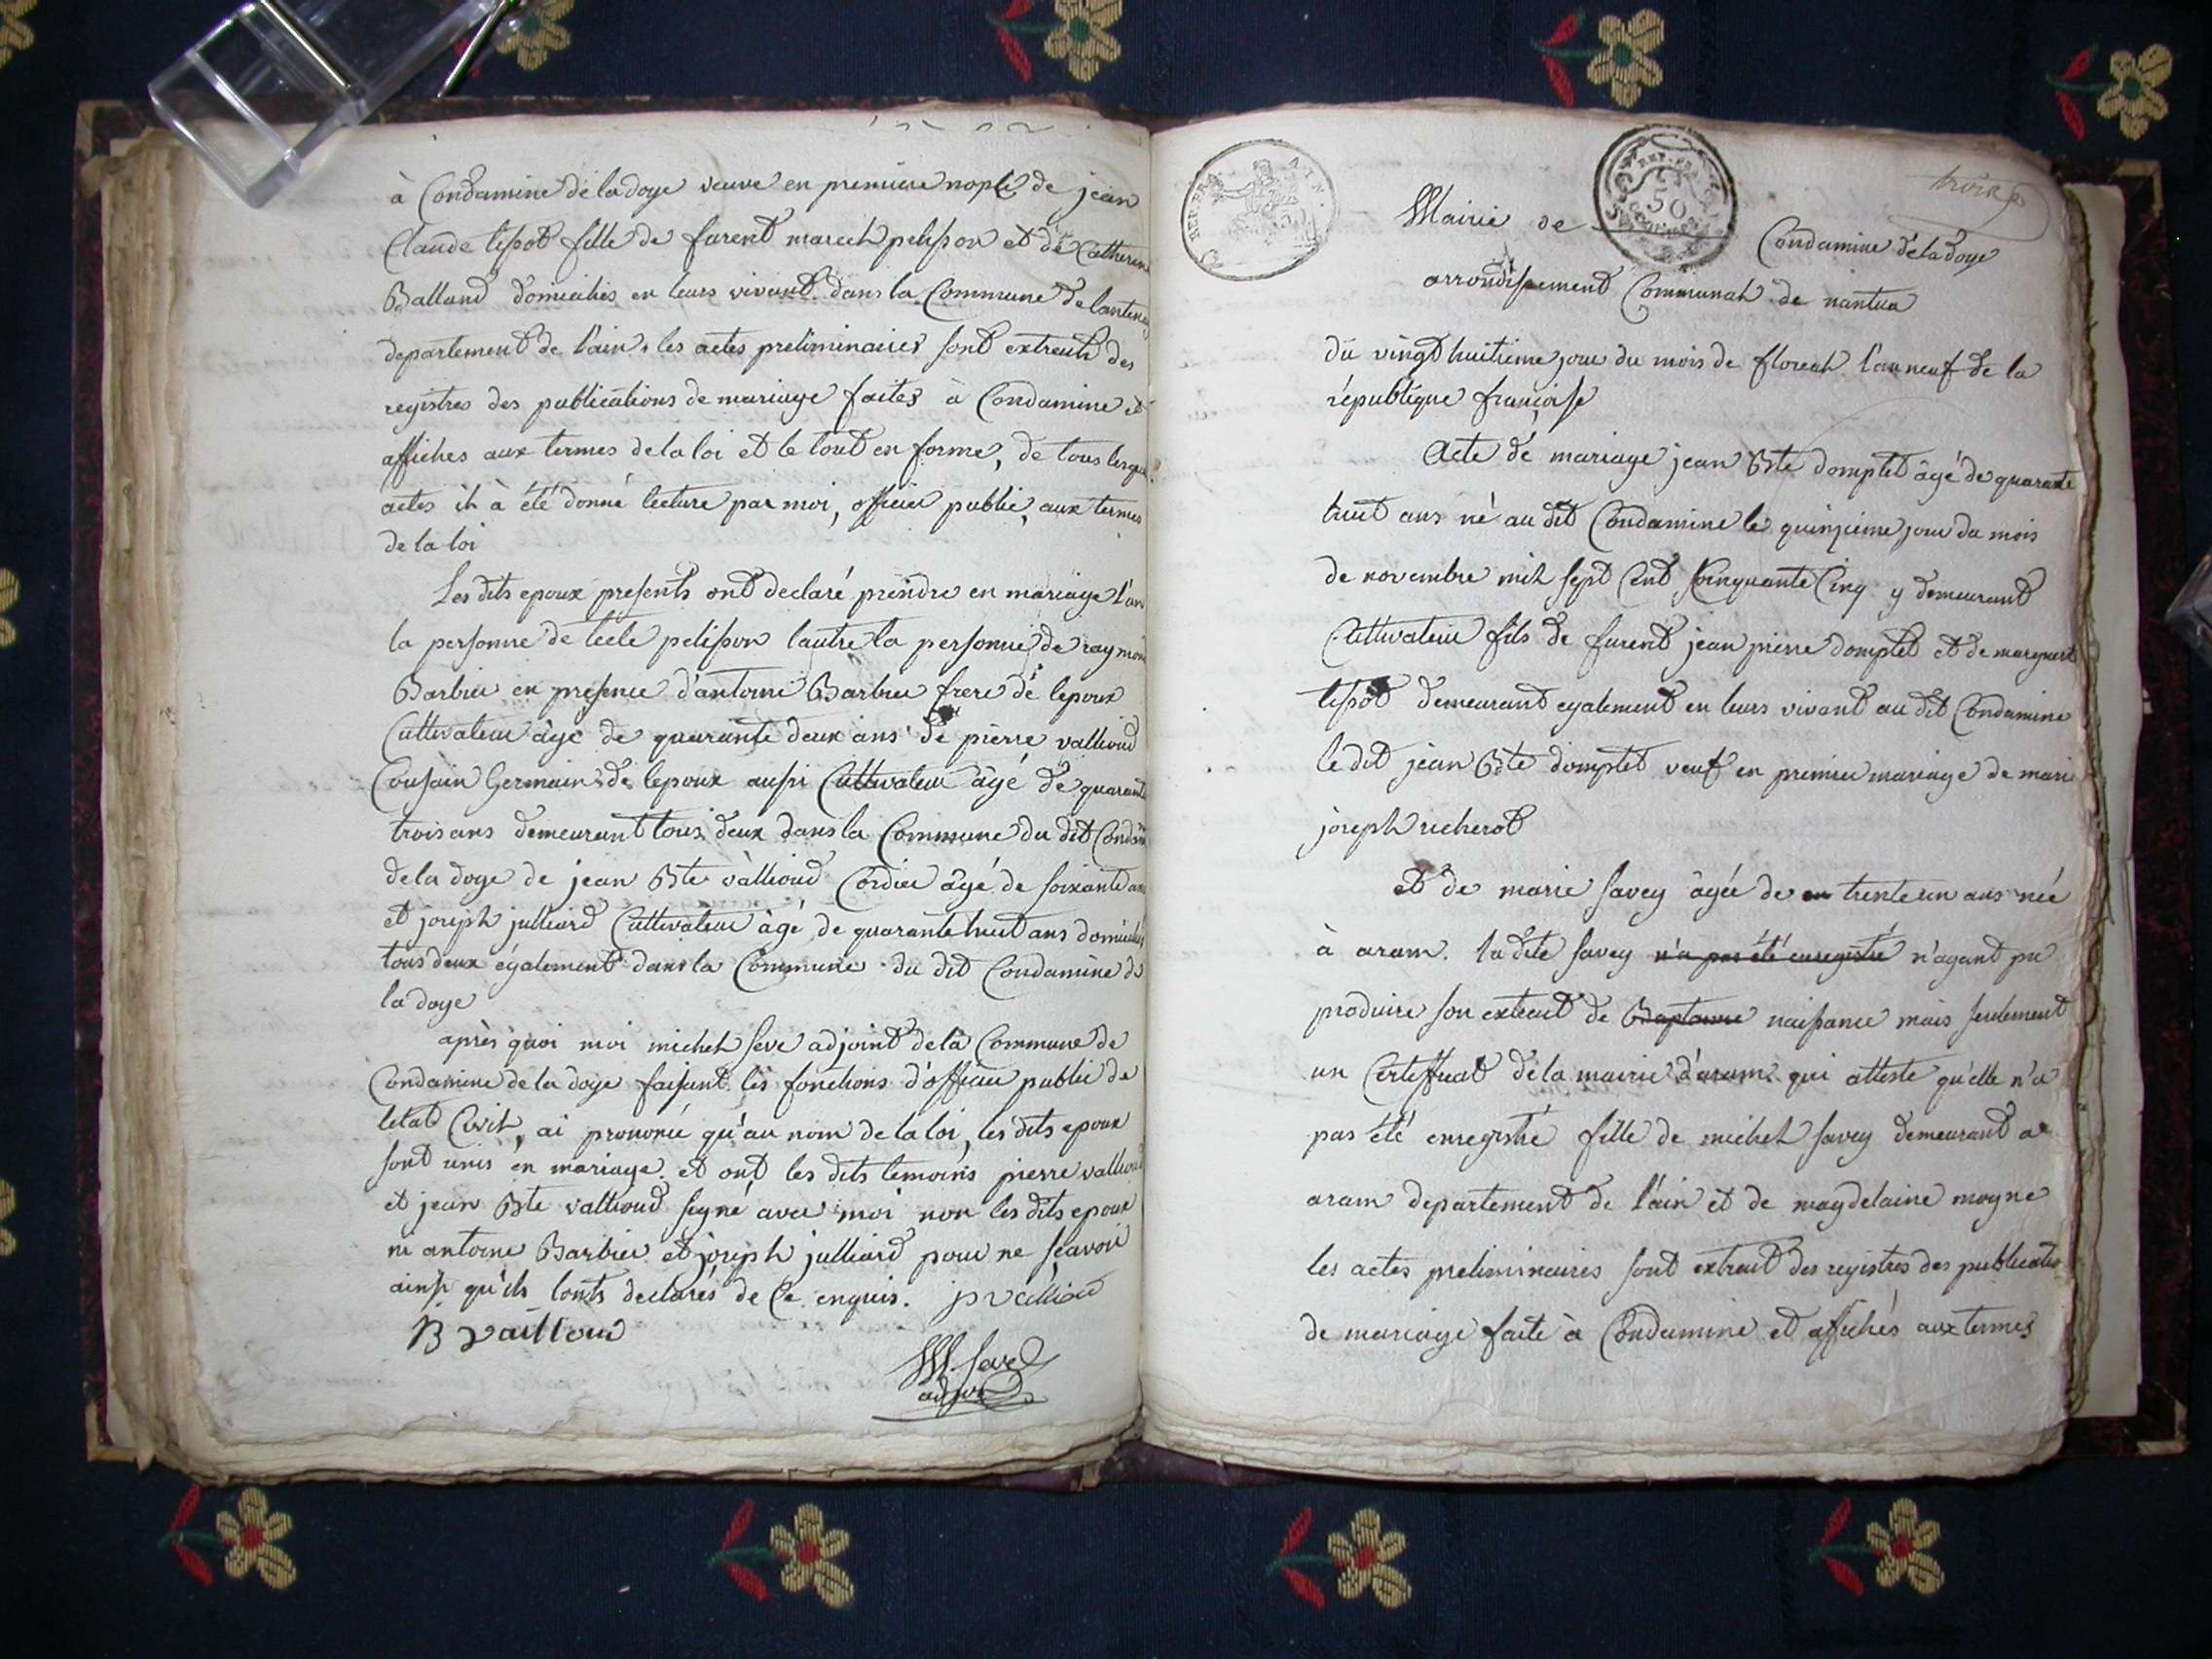 à Condamine de la doye veuve en premiere nopce de jean
Claude tissot fille de furent marech pelisson et de Catherin
Balland domicilies en leurs vivant dans la Commune de lantenay
departement de l'ain. les actes preliminaires sont extreuts des
registres des publications de mariage faites à Condamine et
affiches aux termes de la loi et le tout en forme, de tous lesquels
actes il à été donné lecture par moi, officier public, aux termes
de la loi
Les dits epoux presents ont declaré prendre en mariage l'un
la personne de pelisson lautre la personne de raymond
Barbier en presence d'antoine Barbier frere de lepoux
Cultivateur âgé de quarante deux ans de pierre vallioud
Cousain Germain de lepoux aussi Cultivateur âgé de quarante
trois ans demeurant tous deux dans la Commune du dit Condamine
de la doye de jean Bte vallioud Cordier âgé de soixante ans
et joseph julliard Cultivateur âgé de quarante huit ans domiciliés
tous deux également dans la Commune du dit Condamine de
la doye
après quoi moi michel seve adjoint de la Commune de
Condamine de la doye faisant les fonctions d'officier public de
letat Civil, ai prononcé qu'au nom de la loi, les dits epoux
sont unis en mariage. et ont les dits temoins pierre vallioud
et jean Bte vallioud signé avec moi non les dits epoux
ni antoine Barbier et joseph julliard pour ne sçavoir
ainsi qu'ils lonts declarés de Ce enquis. p vallioud
B vailloud
M. seve
adjoint
REP. FRA
AIN
REP. FRA
50
troise
Mairie de Condamine de la doye
arrondissement Communal de nantua
du vingt huitieme jour du mois de floreal l'an neuf de la
république française
Acte de mariage jean Bte domptet âgé de quarante
huit ans né au dit Condamine le quinzieme jour du mois
de novembre mil sept Cent Cinquante Cinq y demeurant
Cultivateur fils de furent jean pierre domptet et de marguerit
tissot demeurant egalement en leurs vivant au dit Condamine
le dit jean Bte domptet veuf en premier mariage de marie
joseph richerot
et de marie savey âgée de en trente un ans née
à aram. ladite savey n'a pas été enregistré n'ayant pu
produire son extrait de Baptame naissance mais seulement
un Certifficat de la mairie d'aram. qui atteste qu'elle n'a
pas été enregistré fille de michel savey demeurant a
aram departement de l'ain et de magdelaine moyne
les actes preliminaires sont extreut des registres des publications
de mariage faite à Condamine et affichés aux termes